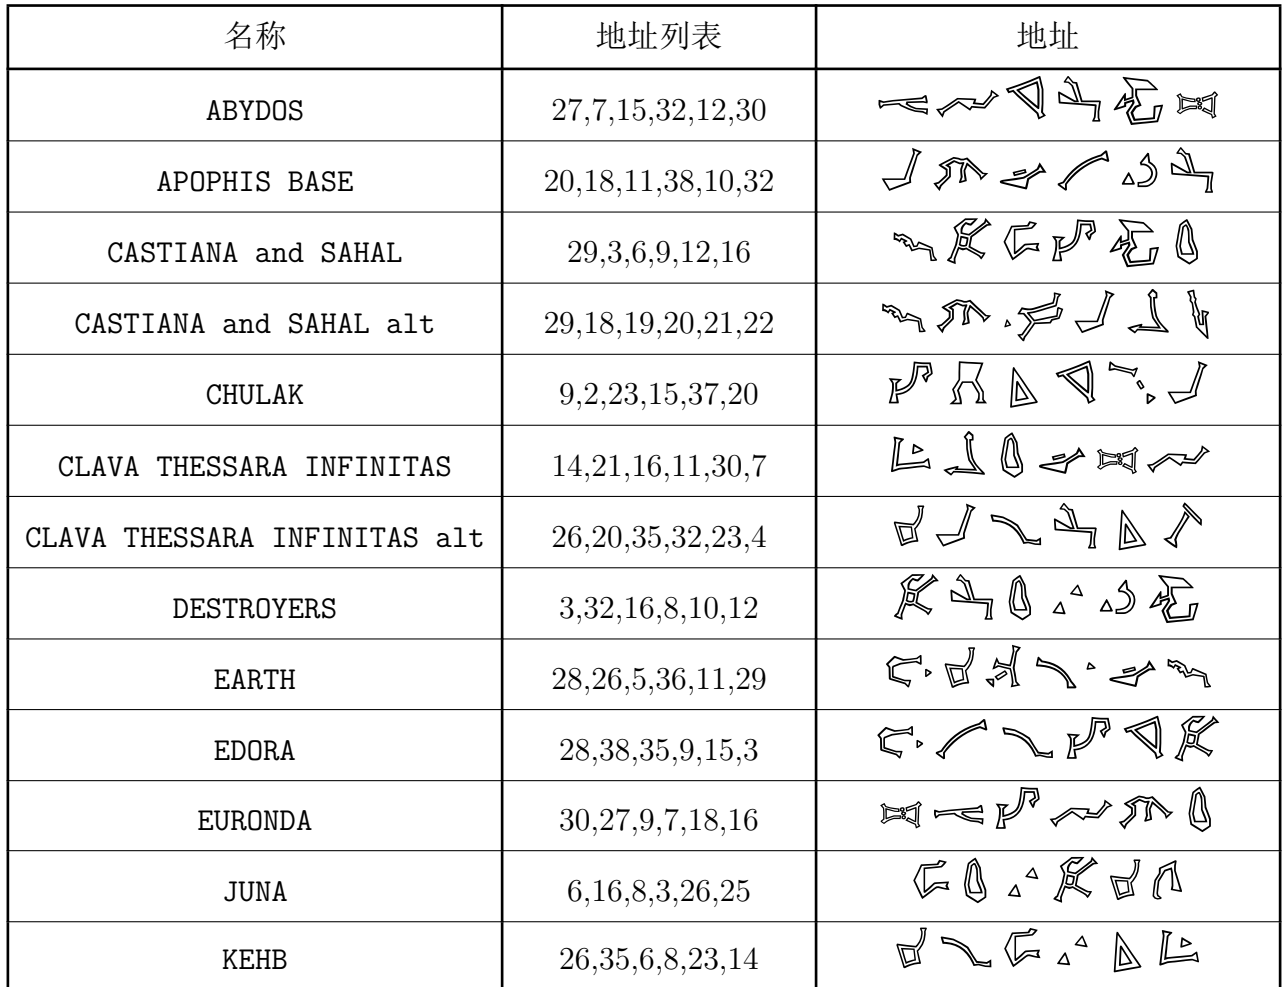 名称 地址列表 地址
ABYDOS 27,7,15,32,12,30
APOPHIS BASE 20,18,11,38,10,32
CASTIANA and SAHAL 29,3,6,9,12,16
CASTIANA and SAHAL alt 29,18,19,20,21,22
CHULAK 9,2,23,15,37,20
CLAVA THESSARA INFINITAS 14,21,16,11,30,7
CLAVA THESSARA INFINITAS alt 26,20,35,32,23,4
DESTROYERS 3,32,16,8,10,12
EARTH 28,26,5,36,11,29
EDORA 28,38,35,9,15,3
EURONDA 30,27,9,7,18,16
JUNA 6,16,8,3,26,25
KEHB 26,35,6,8,23,14